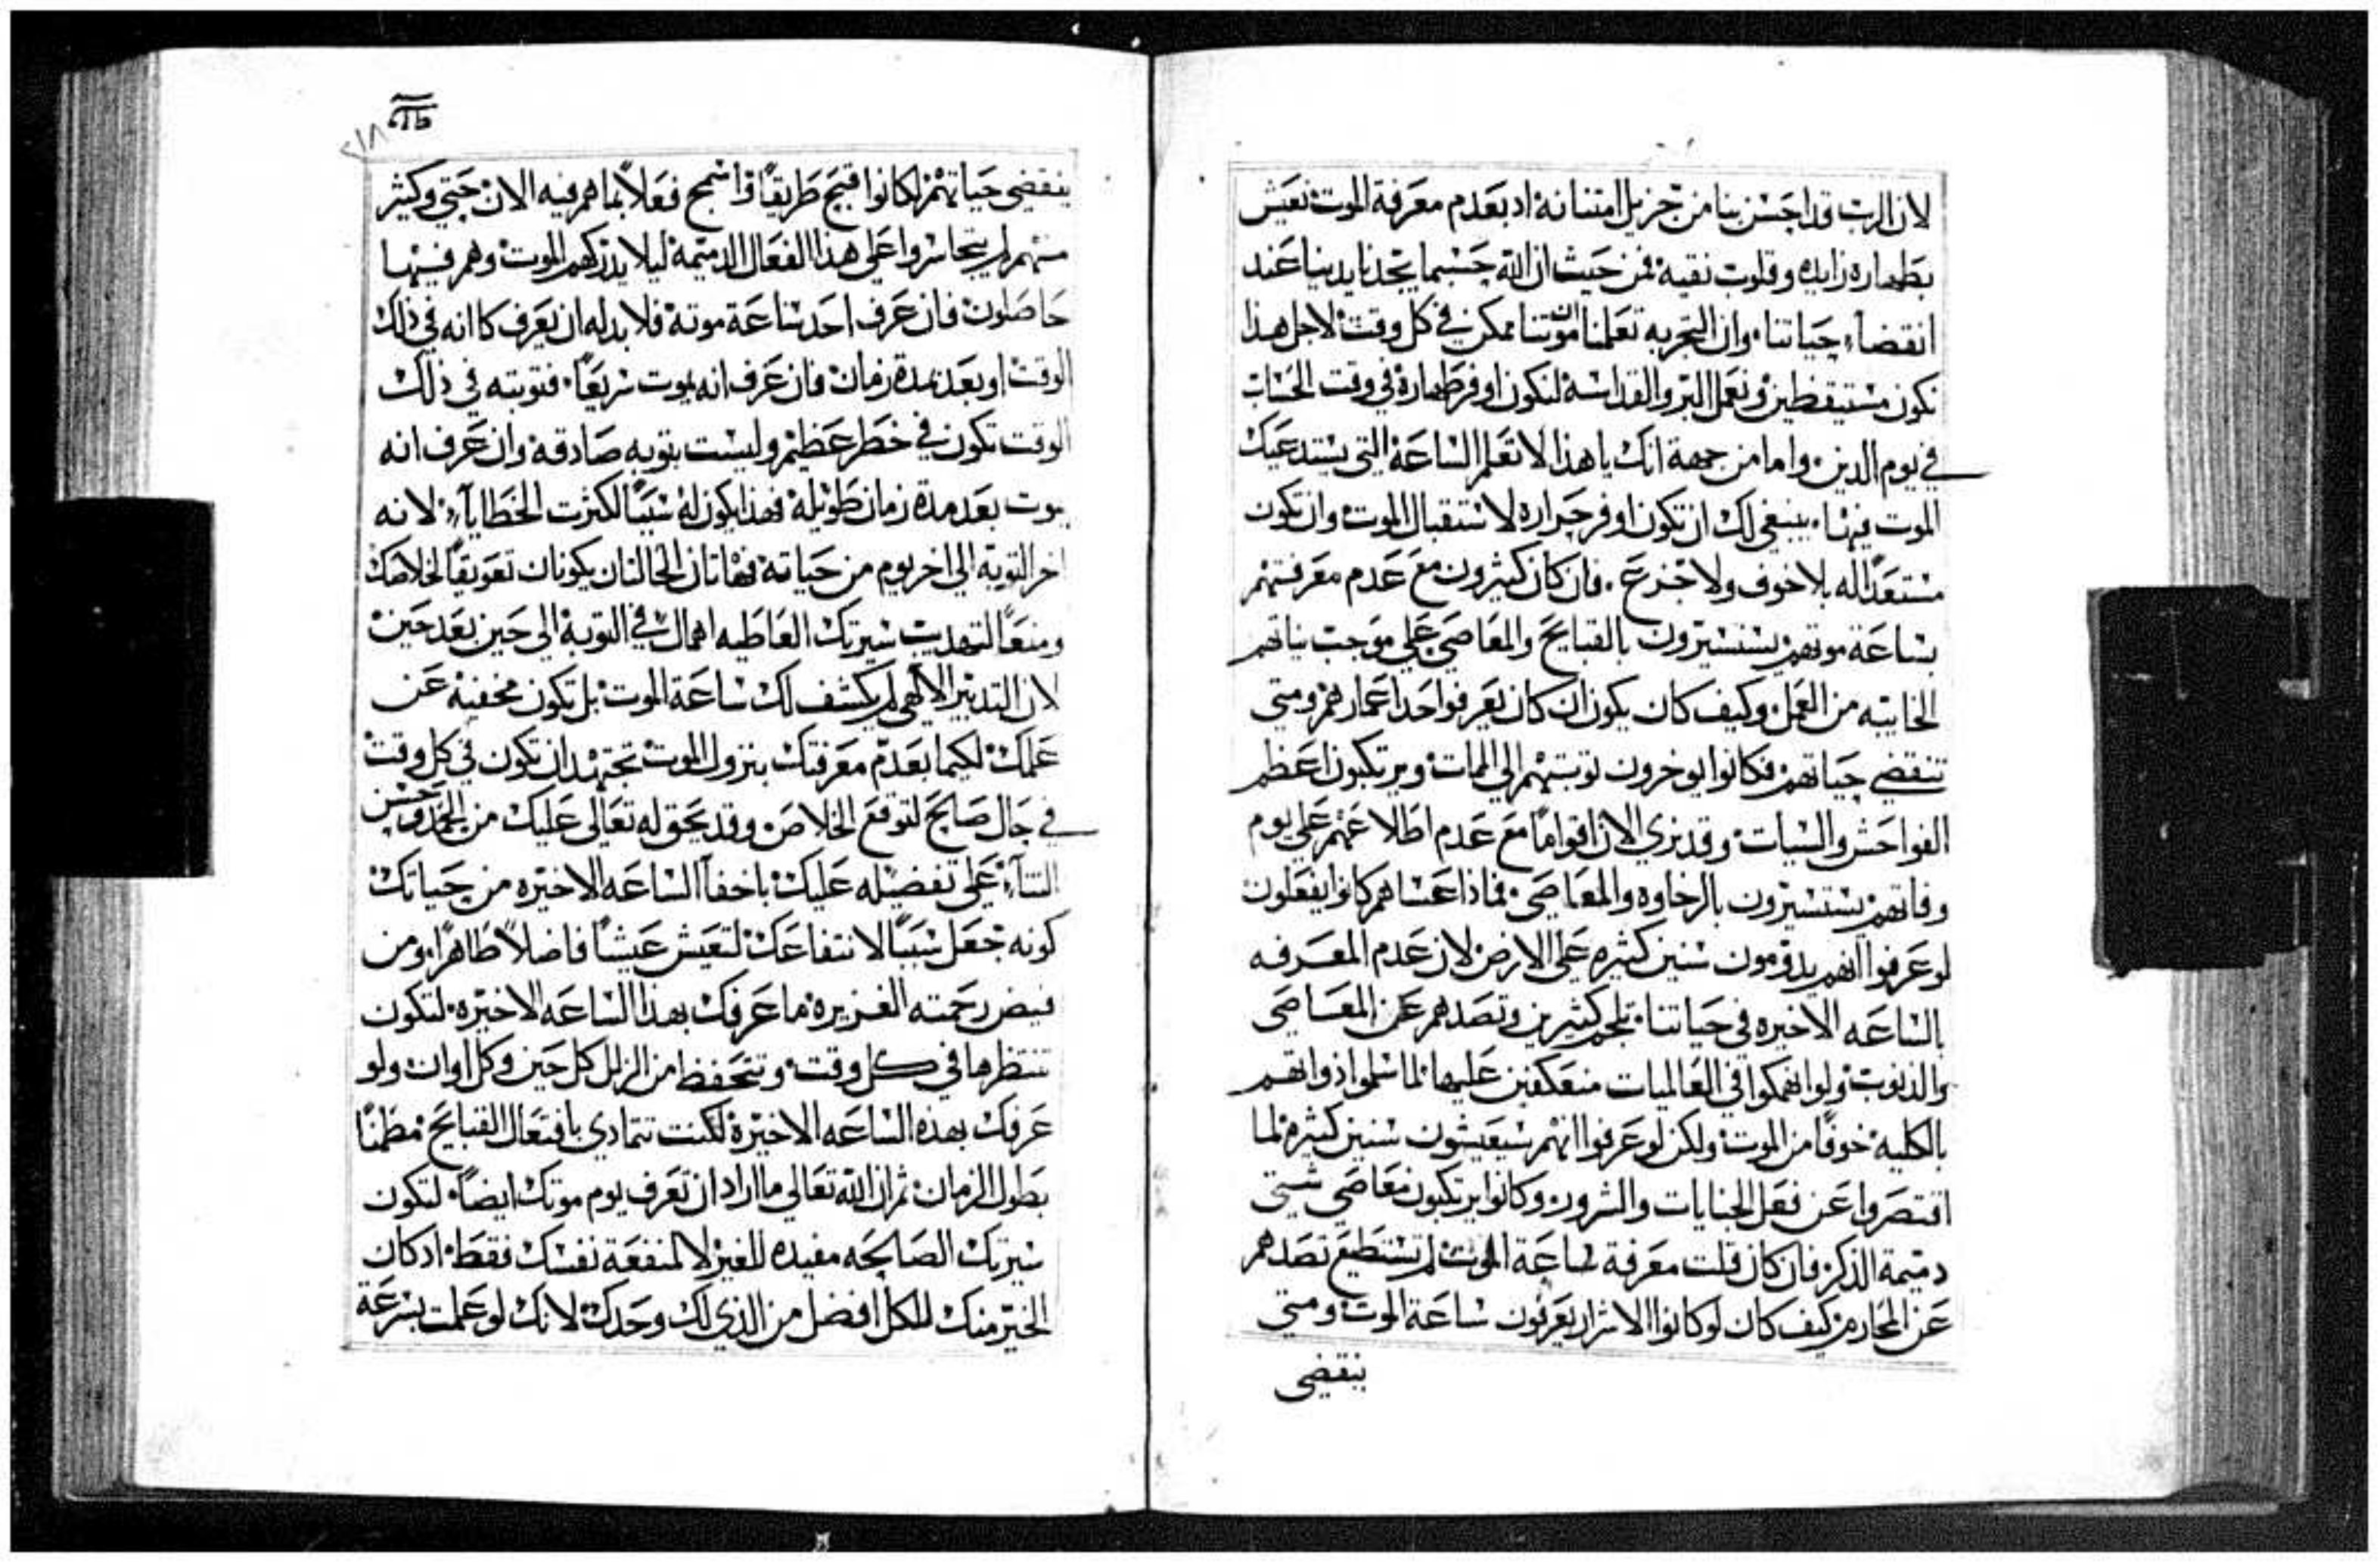 لان الرب قد احسن بنا من جزيل امتنانه اد بعدم معرفة الموت نعيش
بطهاره زايده وقلوب نقيه فمن حيث ان الله حسبما يجدنا يديننا عند
انقضاء حياتنا وان التجربه تعلمنا ان موتنا ممكن في كل وقت لاجل هذا
نكون مستيقظين ونعمل البر والقداسة لنكون اوفر طهارة في وقت الحساب
في يوم الدين واما من جهة انك ياهذا لا تعلم الساعة التي يستدعيك
الموت فيها ينبغي لك ان تكون اوفر حراره لاستقبال الموت وان تكون
مستعدًا له بلا خوف ولا جزع فان كان كثيرون مع عدم معرفتهم
بساعة موتهم يستسيرون بالقبايح والمعاصي علي موجب نياتهم
الخايبه من العمل وكيف كان يكون ان كان يعرفوا حد اعمارهم ومتي
تنقضي حياتهم فكانوا يوخرون توبتهم الي الممات ويرتكبون اعظم
الفواحش والسيات وقد نري الان اقوامًا مع عدم اطلاعهم علي يوم
وفاتهم يستسيرون بالرخاوه والمعاصي فماذا عساهم كانوا يفعلون
لو عرفوا انهم يدومون سنين كثيره علي الارض لان عدم المعرفه
بالساعه الاخيره في حياتنا تلجم كثيرين وتصدهم عن المعاصي
والذنوب ولو انهمكوا في العالميات منعكفين عليها لما سلموا ذواتهم
بالكليه خوفًا من الموت ولكن لو عرفوا انهم سيعيشون سنين كثيره لما
اقتصروا عن فعل الجنايات والشرور وكانوا يرتكبون معاصي شتي
دميمة الذكر فان كان قلت معرفة ساعة الموت لم تستطيع تصدهم
عن المحارم كيف كان لو كانوا الاشرار يعرفون ساعة الموت ومتي
ينقضي
٢١٨
ينقضي حياتهم لكانوا اقبح طريقًا واسمج فعلاً بما هم فيه الان حتي وكثير
منهم لم يتجاسروا علي هذا الفعال الدميمة ليلا يدركهم الموت وهم فيها
حاصلون فان عرف احد ساعة موته فلا بد له ان يعرف كا انه في ذلك
الوقت او بعد مدة زمان فان عرف انه يموت سريعًا فتوبته في ذلك
الوقت تكون في خطر عظيم وليست بتوبه صادقه وان عرف انه
يموت بعد مدة زمان طويله فهذا يكون له سببًا لكثرت الخطايا لانه
اخر التوبة الي اخر يوم من حياته فهاتان الحالتان يكونان تعويقًا لخلاصك
ومنعًا لتهديب سيرتك العاطيه اهمال في التوبة الي حين بعد حين
لان التدبير الالهي لم يكشف لك ساعة الموت بل تكون مخفيه عن
علمك لكيما بعدم معرفتك بنزول الموت تجتهد ان تكون في كل وقت
في حال صالح لتوقع الخلاص وقد يحق له تعالي عليك من الحمد وحسن
الثناء علي تفضيله عليك باخفا الساعه الاخيره من حياتك
كونه جعل سببًا لانتفاعك لتعيش عيشًا فاضلاً طاهرًا ومن
فيض رحمته الغزيره ما عرفك بهذا الساعه الاخيره لتكون
تنتظرها في كل وقت وتتحفظ من الزلل كل حين وكل اوان ولو
عرفك بهده الساعه الاخيرة لكنت تتمادي بافتعال القبايح مطمنًا
بطول الزمان ثم ان الله تعالي ما اراد ان تعرف يوم موتك ايضًا لتكون
سيرتك الصالحه مفيده للغير لا لمنفعة نفسك فقط اد كان
الخير منك للكل افضل من الذي لك وحدك لانك لو علمت بسرعة